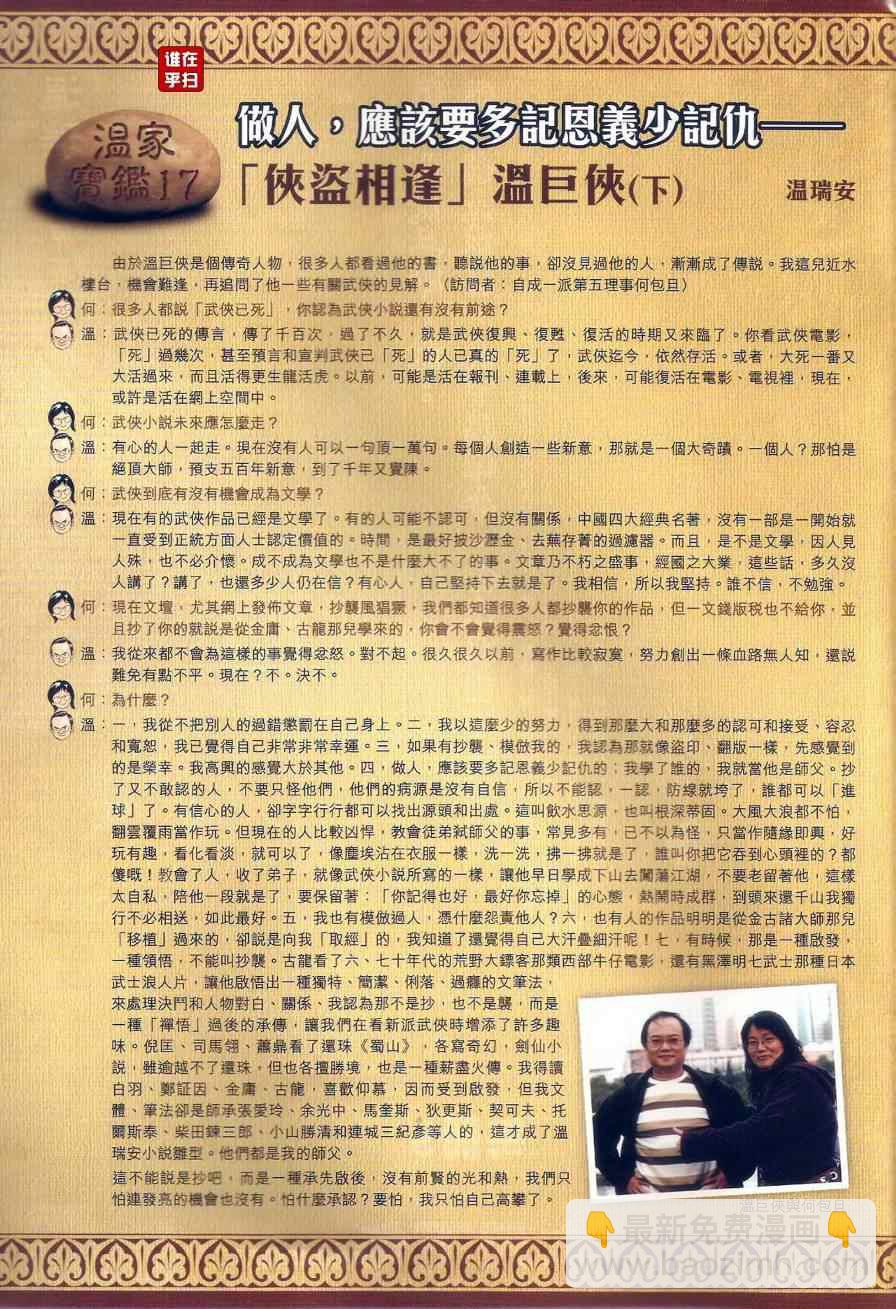 谁在
乎扫
溫家
寶鑑17
做人，應該要多記恩義少記仇——
「俠盜相逢」溫巨俠(下)
溫瑞安
由於溫巨俠是個傳奇人物，很多人都看過他的書，聽說他的事，卻沒見過他的人，漸漸成了傳說。我這兒近水
樓台，機會難逢，再追問了他一些有關武俠的見解。（訪問者：自成一派第五理事何包旦）
何：很多人都說「武俠已死」，你認為武俠小說還有沒有前途？
溫：武俠已死的傳言，傳了千百次，過了不久，就是武俠復興、復甦、復活的時期又來臨了。你看武俠電影，
「死」過幾次，甚至預言和宣判武俠已「死」的人已真的「死」了，武俠迄今，依然存活。或者，大死一番又
大活過來，而且活得更生龍活虎。以前，可能是活在報刊、連載上，後來，可能復活在電影、電視裡，現在，
或許是活在網上空間中。
何：武俠小說未來應怎麼走？
溫：有心的人一起走。現在沒有人可以一句頂一萬句。每個人創造一些新意，那就是一個大奇蹟。一個人？那怕是
絕頂大師，預支五百年新意，到了千年又覺陳。
何：武俠到底有沒有機會成為文學？
溫：現在有的武俠作品已經是文學了。有的人可能不認可，但沒有關係，中國四大經典名著，沒有一部是一開始就
一直受到正統方面人士認定價值的。時間，是最好披沙瀝金、去蕪存菁的過濾器。而且，是不是文學，因人見
人殊，也不必介懷。成不成為文學也不是什麼大不了的事。文章乃不朽之盛事，經國之大業，這些話，多久沒
人講了？講了，也還多少人仍在信？有心人，自己堅持下去就是了。我相信，所以我堅持。誰不信，不勉強。
何：現在文壇，尤其網上發佈文章，抄襲風猖獗，我們都知道很多人都抄襲你的作品，但一文錢版税也不給你，並
且抄了你的就說是從金庸、古龍那兒學來的，你會不會覺得震怒？覺得忿恨？
溫：我從來都不會為這樣的事覺得忿怒。對不起。很久很久以前，寫作比較寂寞，努力創出一條血路無人知，還說
難免有點不平。現在？不。決不。
何：為什麼？
溫：一，我從不把別人的過錯懲罰在自己身上。二，我以這麼少的努力，得到那麼大和那麼多的認可和接受、容忍
和寬恕，我已覺得自己非常非常幸運。三，如果有抄襲、模倣我的，我認為那就像盜印、翻版一樣，先感覺到
的是榮幸。我高興的感覺大於其他。四，做人，應該要多記恩義少記仇的；我學了誰的，我就當他是師父。抄
了又不敢認的人，不要只怪他們，他們的病源是沒有自信，所以不能認，一認，防線就垮了，誰都可以「進
球」了。有信心的人，卻字字行行都可以找出源頭和出處。這叫飲水思源，也叫根深蒂固。大風大浪都不怕，
翻雲覆雨當作玩。但現在的人比較凶悍，教會徒弟弒師父的事，常見多有，已不以為怪，只當作隨緣即興，好
玩有趣，看化看淡，就可以了，像塵埃沾在衣服一樣，洗一洗，拂一拂就是了，誰叫你把它吞到心頭裡的？都
傻嘅！教會了人，收了弟子，就像武俠小說所寫的一樣，讓他早日學成下山去闖蕩江湖，不要老留著他，這樣
太自私，陪他一段就是了，要保留著：「你記得也好，最好你忘掉」的心態，熱鬧時成群，到頭來還千山我獨
行不必相送，如此最好。五，我也有模倣過人，憑什麼怨責他人？六，也有人的作品明明是從金古諸大師那兒
「移植」過來的，卻說是向我「取經」的，我知道了還覺得自己大汗疊細汗呢！七，有時候，那是一種啟發，
一種領悟，不能叫抄襲。古龍看了六、七十年代的荒野大鏢客那類西部牛仔電影，還有黑澤明七武士那種日本
武士浪人片，讓他啟悟出一種獨特、簡潔、俐落、過癮的文筆法，
來處理決鬥和人物對白、關係、我認為那不是抄，也不是襲，而是
一種「禪悟」過後的承傳，讓我們在看新派武俠時增添了許多趣
味。倪匡、司馬翎、蕭鼎看了還珠《蜀山》，各寫奇幻，劍仙小
說，雖逾越不了還珠，但也各擅勝境，也是一種薪盡火傳。我得讀
白羽、鄭証因、金庸、古龍，喜歡仰慕，因而受到啟發，但我文
體、筆法卻是師承張愛玲、余光中、馬奎斯、狄更斯、契可夫、托
爾斯泰、柴田鍊三郎、小山勝清和連城三紀彥等人的，這才成了溫
瑞安小說雛型。他們都是我的師父。
這不能說是抄吧，而是一種承先啟後，沒有前賢的光和熱，我們只
怕連發亮的機會也沒有。怕什麼承認？要怕，我只怕自己高攀了。
溫巨俠與何包旦
最新免费漫画
www.baozimh.com